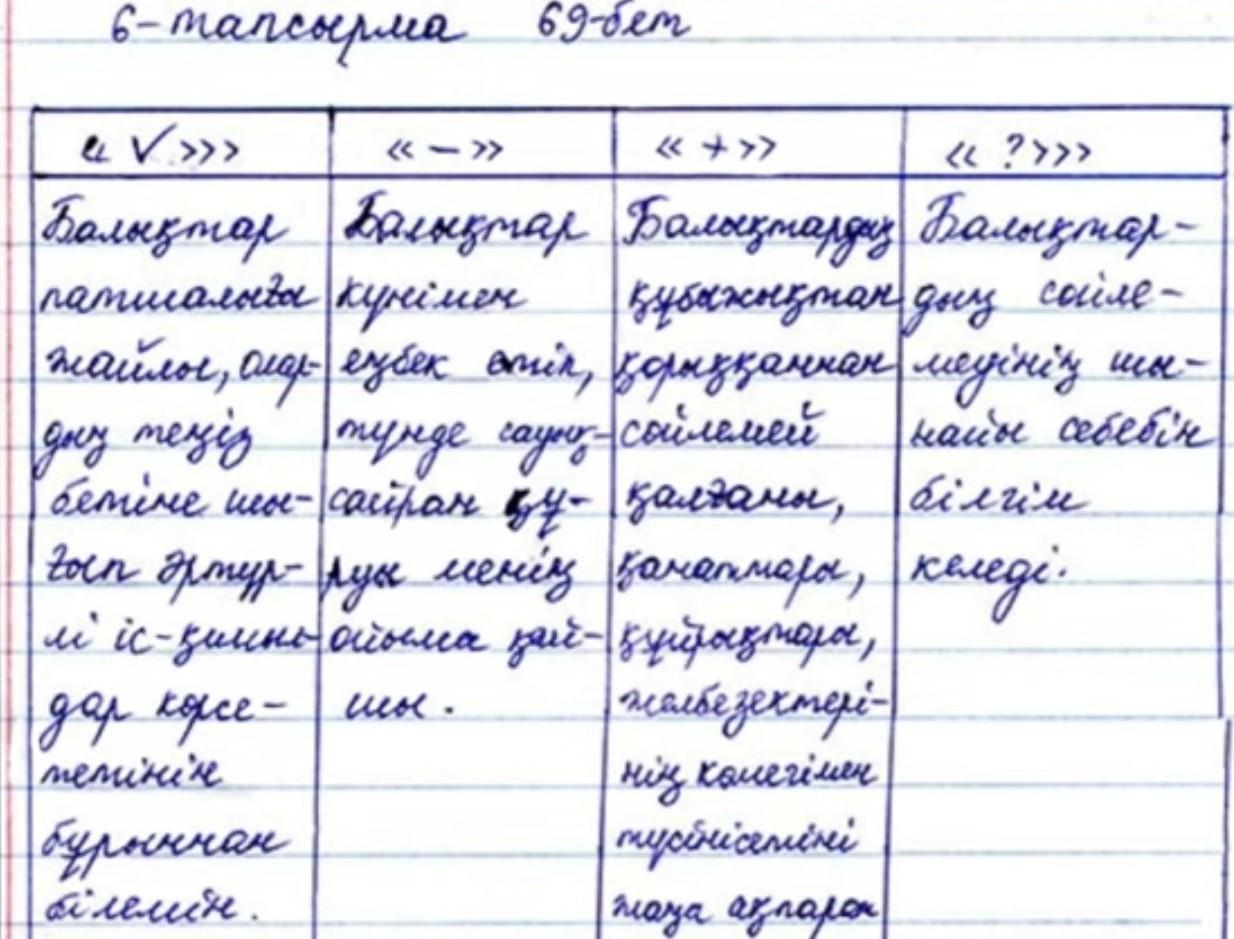 6-тапсырма 69-бет
« ✓ »»
« - »
« + »
« ? »»
Балықтар
патшалығы
жайлы, олар-
дың теңіз
бетіне шы-
ғып әртүр-
лі іс-қимыл-
дар көрсе-
тетінін
бұрыннан
білемін.
Балықтар
күнімен
еңбек етіп,
түнде сауық-
сайран құ-
руы менің
ойыма қай-
шы.
Балықтардың
құбыжықтан
қорыққаннан
сөйлемей
қалғаны,
қанаттары,
құйрықтары,
желбезектері-
нің көмегімен
түсінісетіні
жаңа ақпарат
Балықтар-
дың сөйле-
меуінің шы-
найы себебін
білгім
келеді.